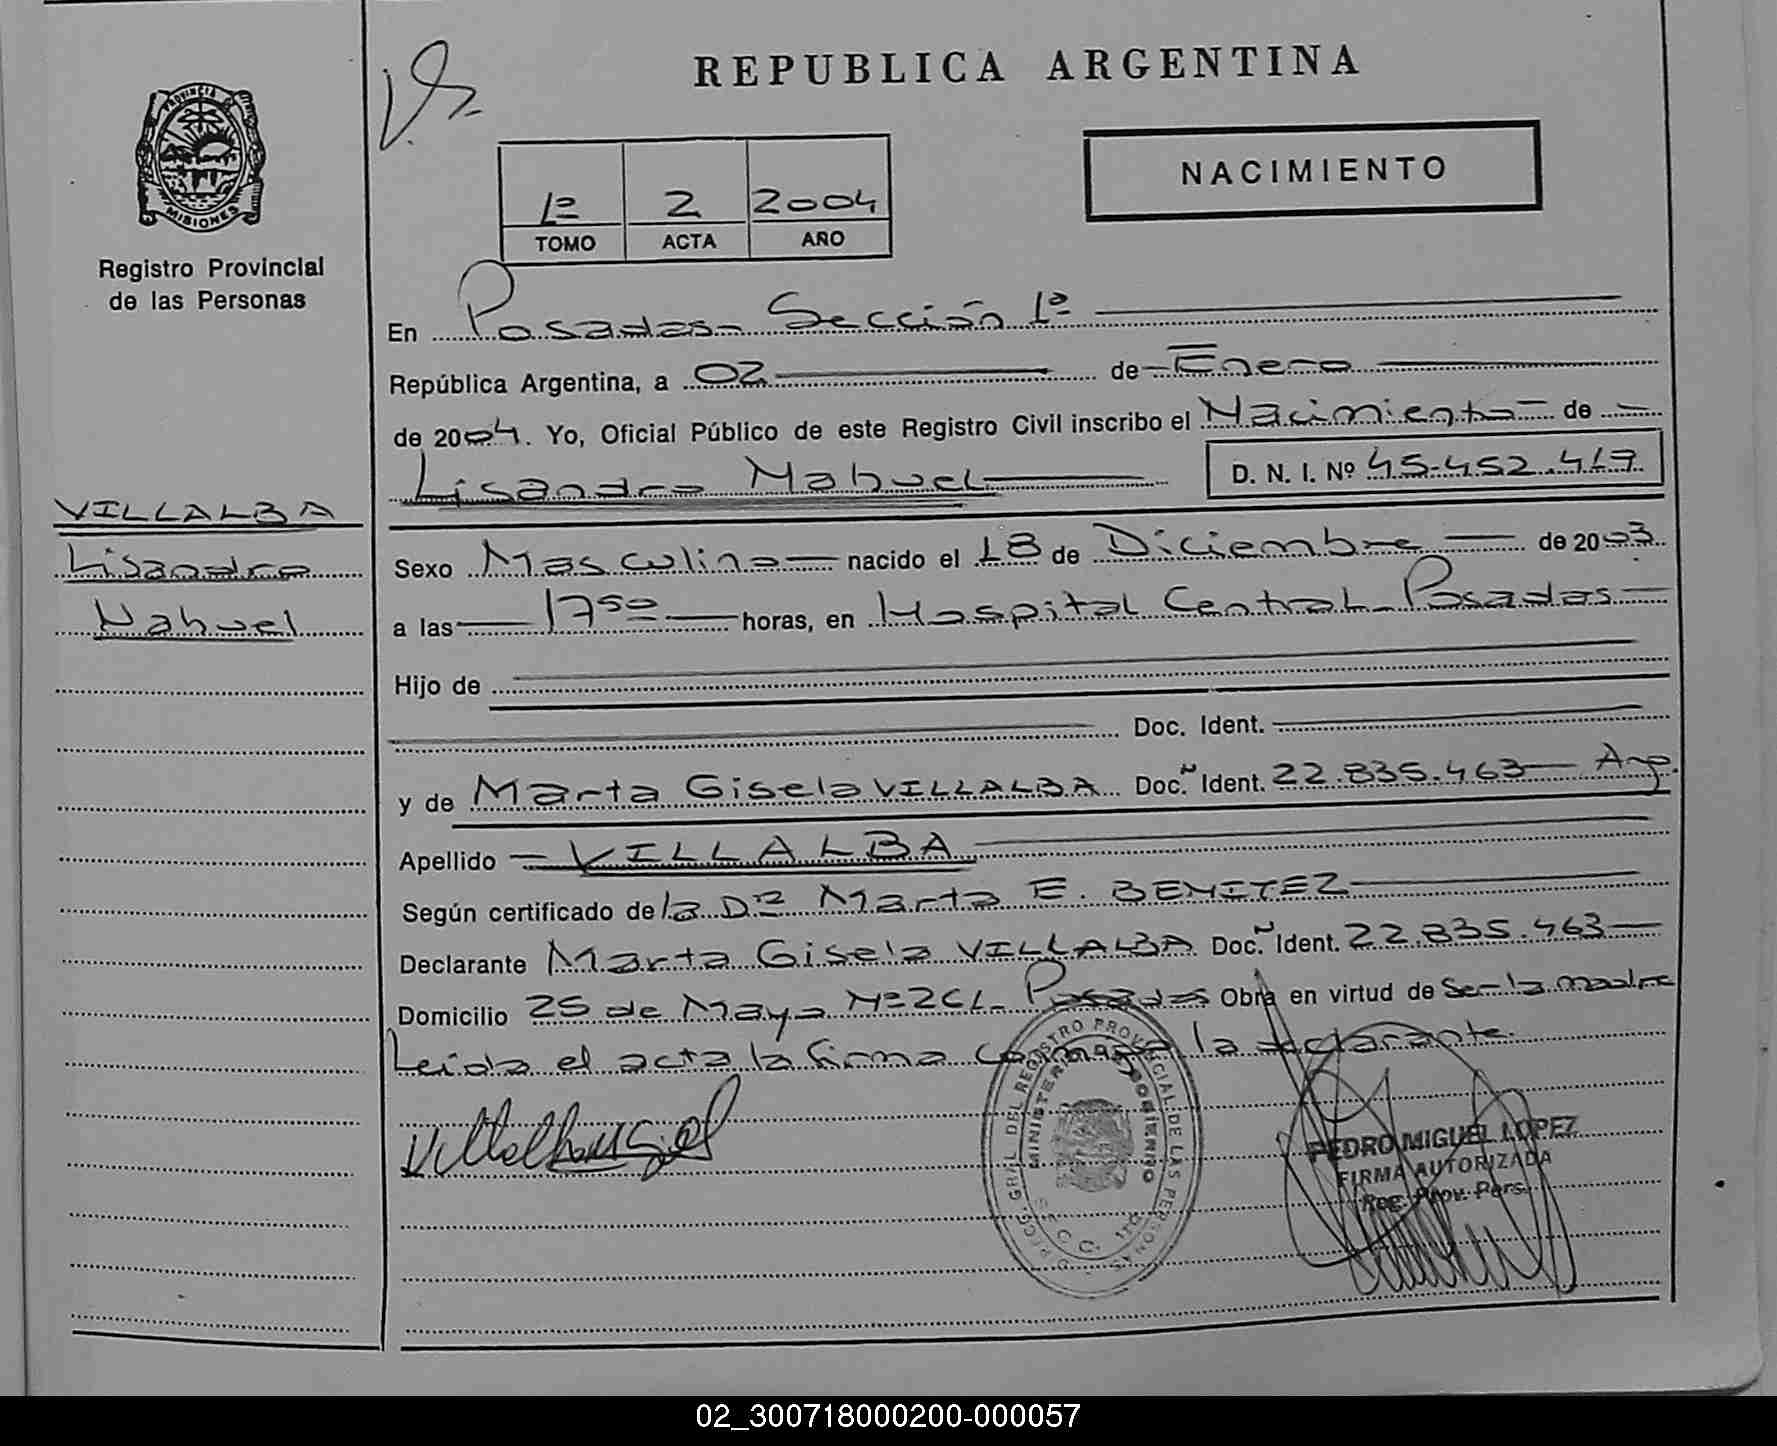 REPUBLICA ARGENTINA
PROVINCIA DE
MISIONES
Registro Provincial
de las Personas
NACIMIENTO
1º 2 2004
TOMO ACTA AÑO
En Posadas- Sección 1ª
República Argentina, a 02 de Enero
de 2004. Yo, Oficial Público de este Registro Civil inscribo el Nacimiento de
Lisandro Nahuel D. N. I. Nº 45.452.419
VILLALBA
Lisandro
Nahuel
Sexo Masculino nacido el 18 de Diciembre de 2003
a las 17 50 horas, en Hospital Central- Posadas
Hijo de
Doc. Ident.
y de Marta Gisela VILLALBA Doc. Ident. 22.835.463 Arg.
Apellido VILLALBA
Según certificado de la Dra Marta E. BENITEZ
Declarante Marta Gisela VILLALBA Doc. Ident. 22.835.463
Domicilio 25 de Mayo Nº 261- Posadas Obra en virtud de Ser la madre
Leída el acta la firma conmigo la declarante.
REGISTRO PROVINCIAL DE LAS PERSONAS
MINISTERIO GOBIERNO
PEDRO MIGUEL LOPEZ
FIRMA AUTORIZADA
Reg. Prov. Pers.
02_300718000200-000057